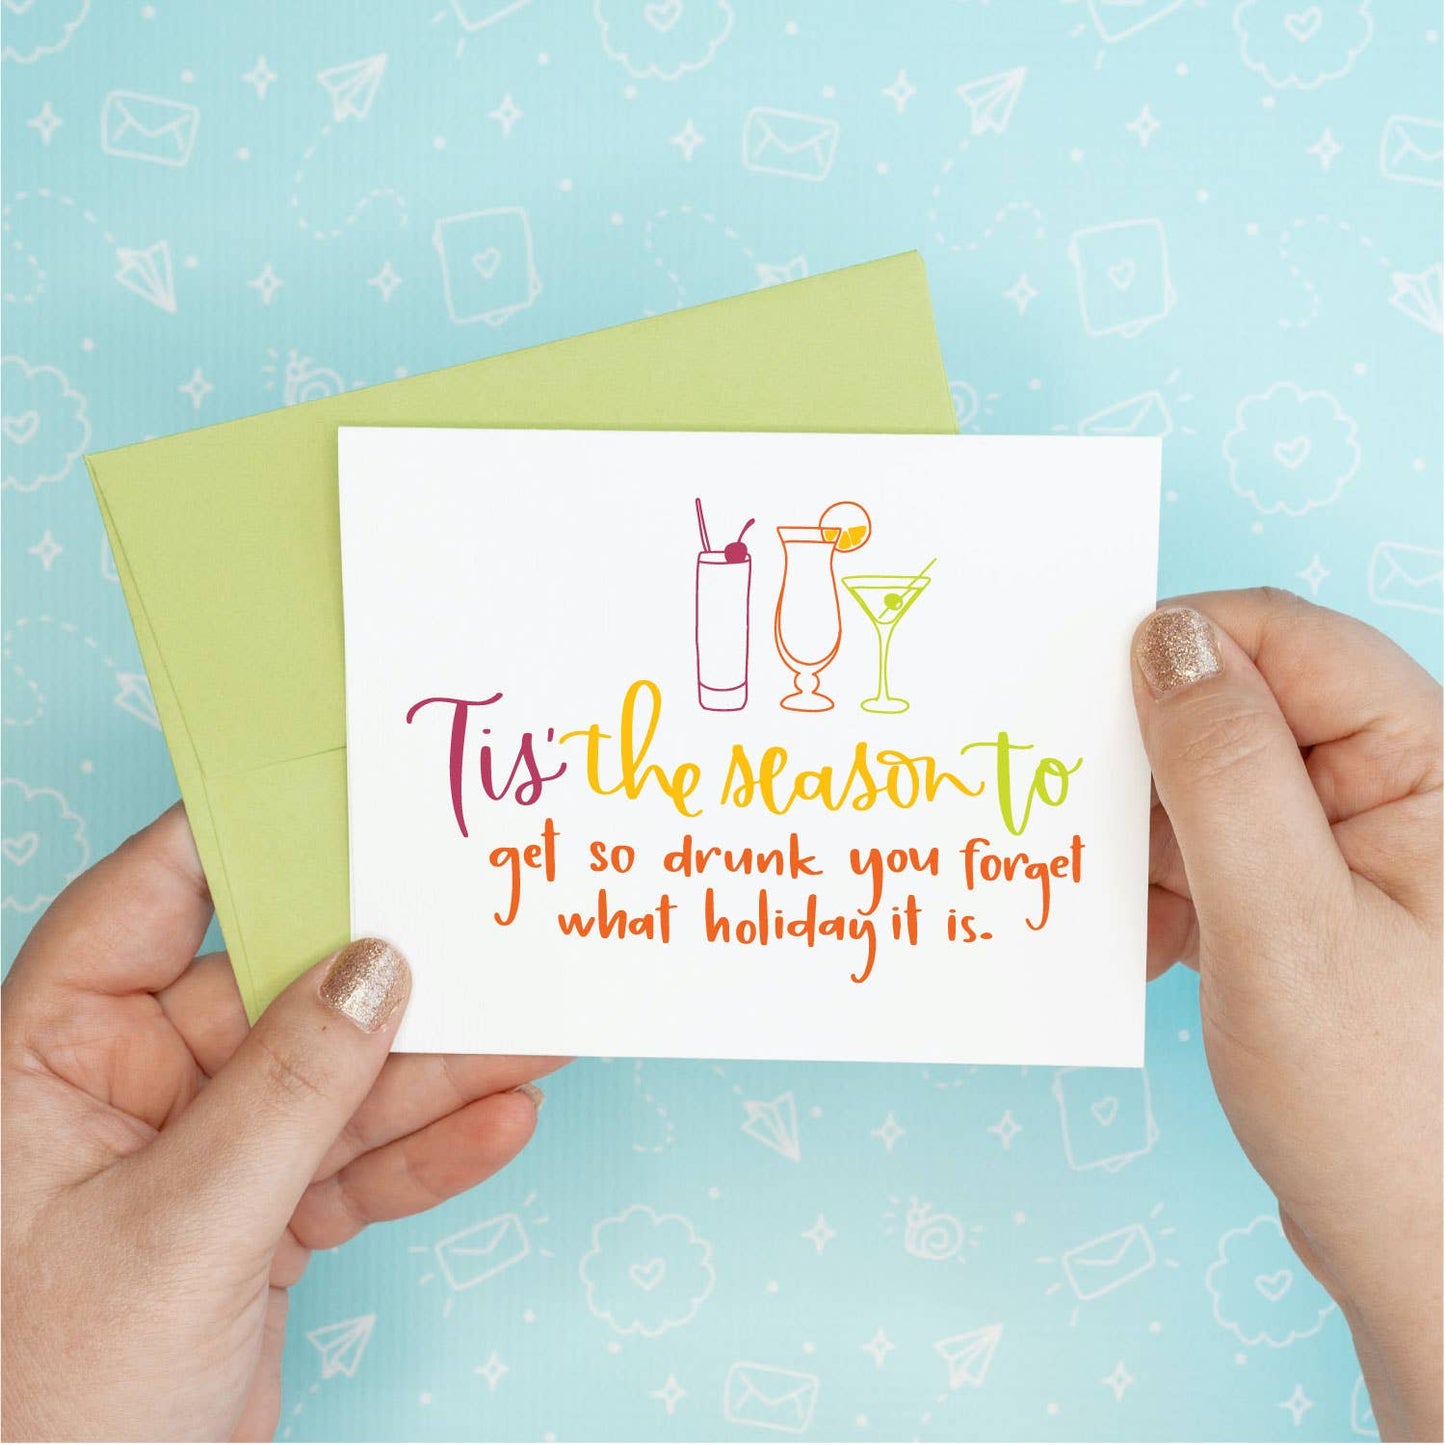 Tis' the season to
get so drunk you forget
what holiday it is.